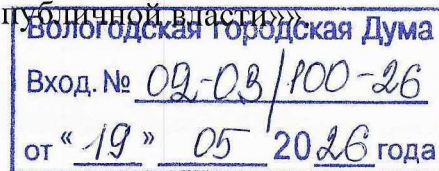 публичной власти»».
Вологодская Городская Дума
Вход. № 02-03/100-26
от “19” 05 2026 года